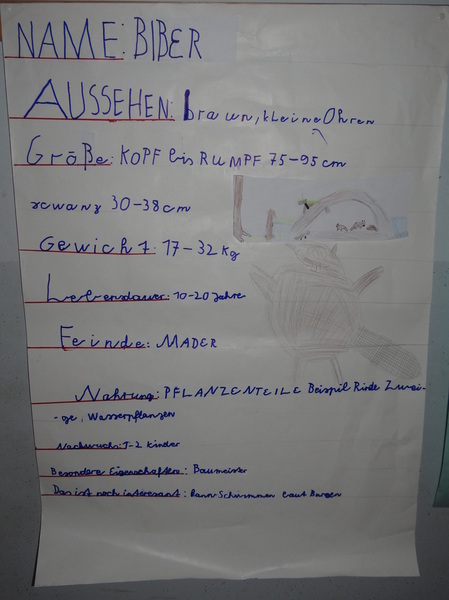 NAME: BIBER
AUSSEHEN: braun, kleine Ohren
Größe: KOPF bis RUMPF 75-95 cm
scwanz 30-38 cm
Gewicht: 17-32 Kg
Lebensdauer: 10-20 Jahre
Feinde: MADER
Nahrung: PFLANZENTEILE Beispil Rinde Zwei-
-ge, Wasserpflanzen
Nachwuch: 1-2 Kinder
Besondere Eigenschaften: Baumeister
Das ist noch interesant: kann Schwimmen baut Burgen